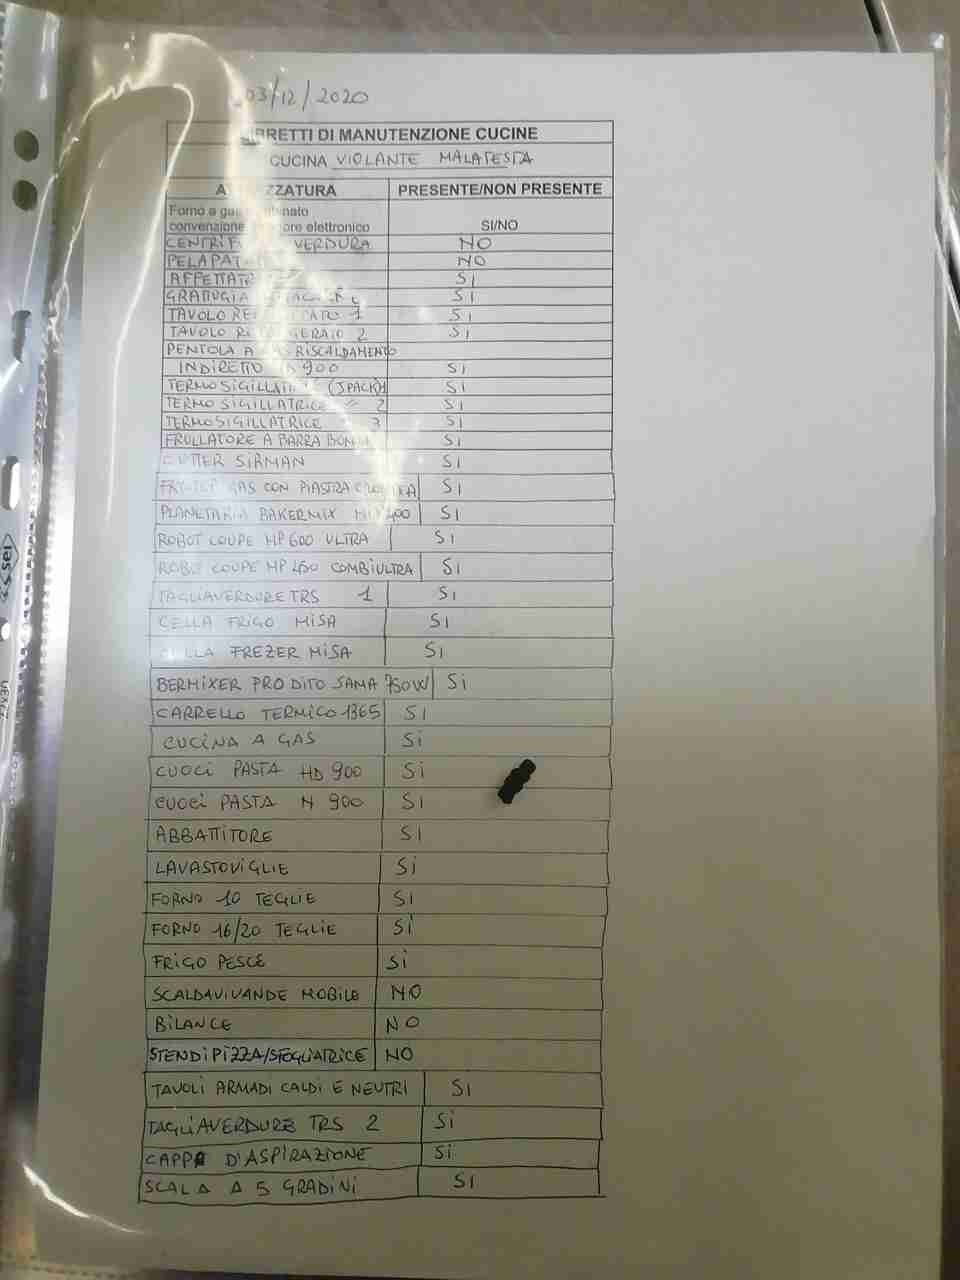 03/12/2020
LIBRETTI DI MANUTENZIONE CUCINE
CUCINA VIOLANTE MALATESTA
ATTREZZATURA PRESENTE/NON PRESENTE
Forno a gas
convenzione elettronico SI/NO
VERDURA NO
NO
SI
GRATTUGIA SI
TAVOLO 1 SI
TAVOLO 2 SI
PENTOLA A GAS RISCALDAMENTO
INDIRETTO 900 SI
TERMOSIGILLATRICE (JPACK)1 SI
TERMOSIGILLATRICE 2 SI
TERMOSIGILLATRICE 3 SI
FRULLATORE A BARRA SI
CUTTER SIRMAN SI
FRY-TOP GAS CON PIASTRA SI
PLANETARIA BAKERMIX SI
ROBOT COUPE MP600 ULTRA SI
ROBOT COUPE MP 450 COMBIULTRA SI
TAGLIAVERDURE TRS 1 SI
CELLA FRIGO MISA Si
CELLA FREZER MISA Si
BERMIXER PRO DITO SAMA 750W Si
CARRELLO TERMICO 1365 SI
CUCINA A GAS Si
CUOCI PASTA HD 900 Si
CUOCI PASTA N 900 SI
ABBATTITORE SI
LAVASTOVIGLIE Si
FORNO 10 TEGLIE SI
FORNO 16/20 TEGLIE Si
FRIGO PESCE Si
SCALDAVIVANDE MOBILE NO
BILANCE NO
STENDIPIZZA/SFOGLIATRICE NO
TAVOLI ARMADI CALDI E NEUTRI SI
TAGLIAVERDURE TRS 2 Si
CAPPA D'ASPIRAZIONE Si
SCALA A 5 GRADINI SI